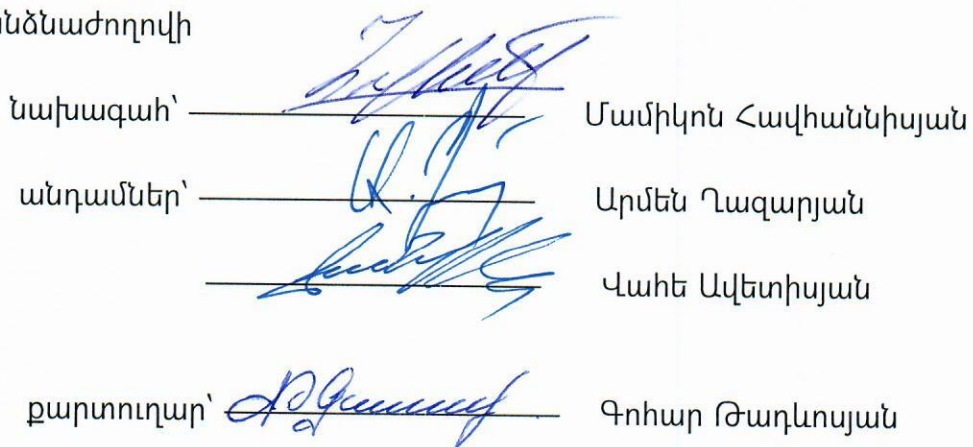 նձնաժողովի
նախագահ՝ Մամիկոն Հավհաննիսյան
անդամներ՝ Արմեն Ղազարյան
Վահե Ավետիսյան
քարտուղար՝ Գոհար Թադևոսյան